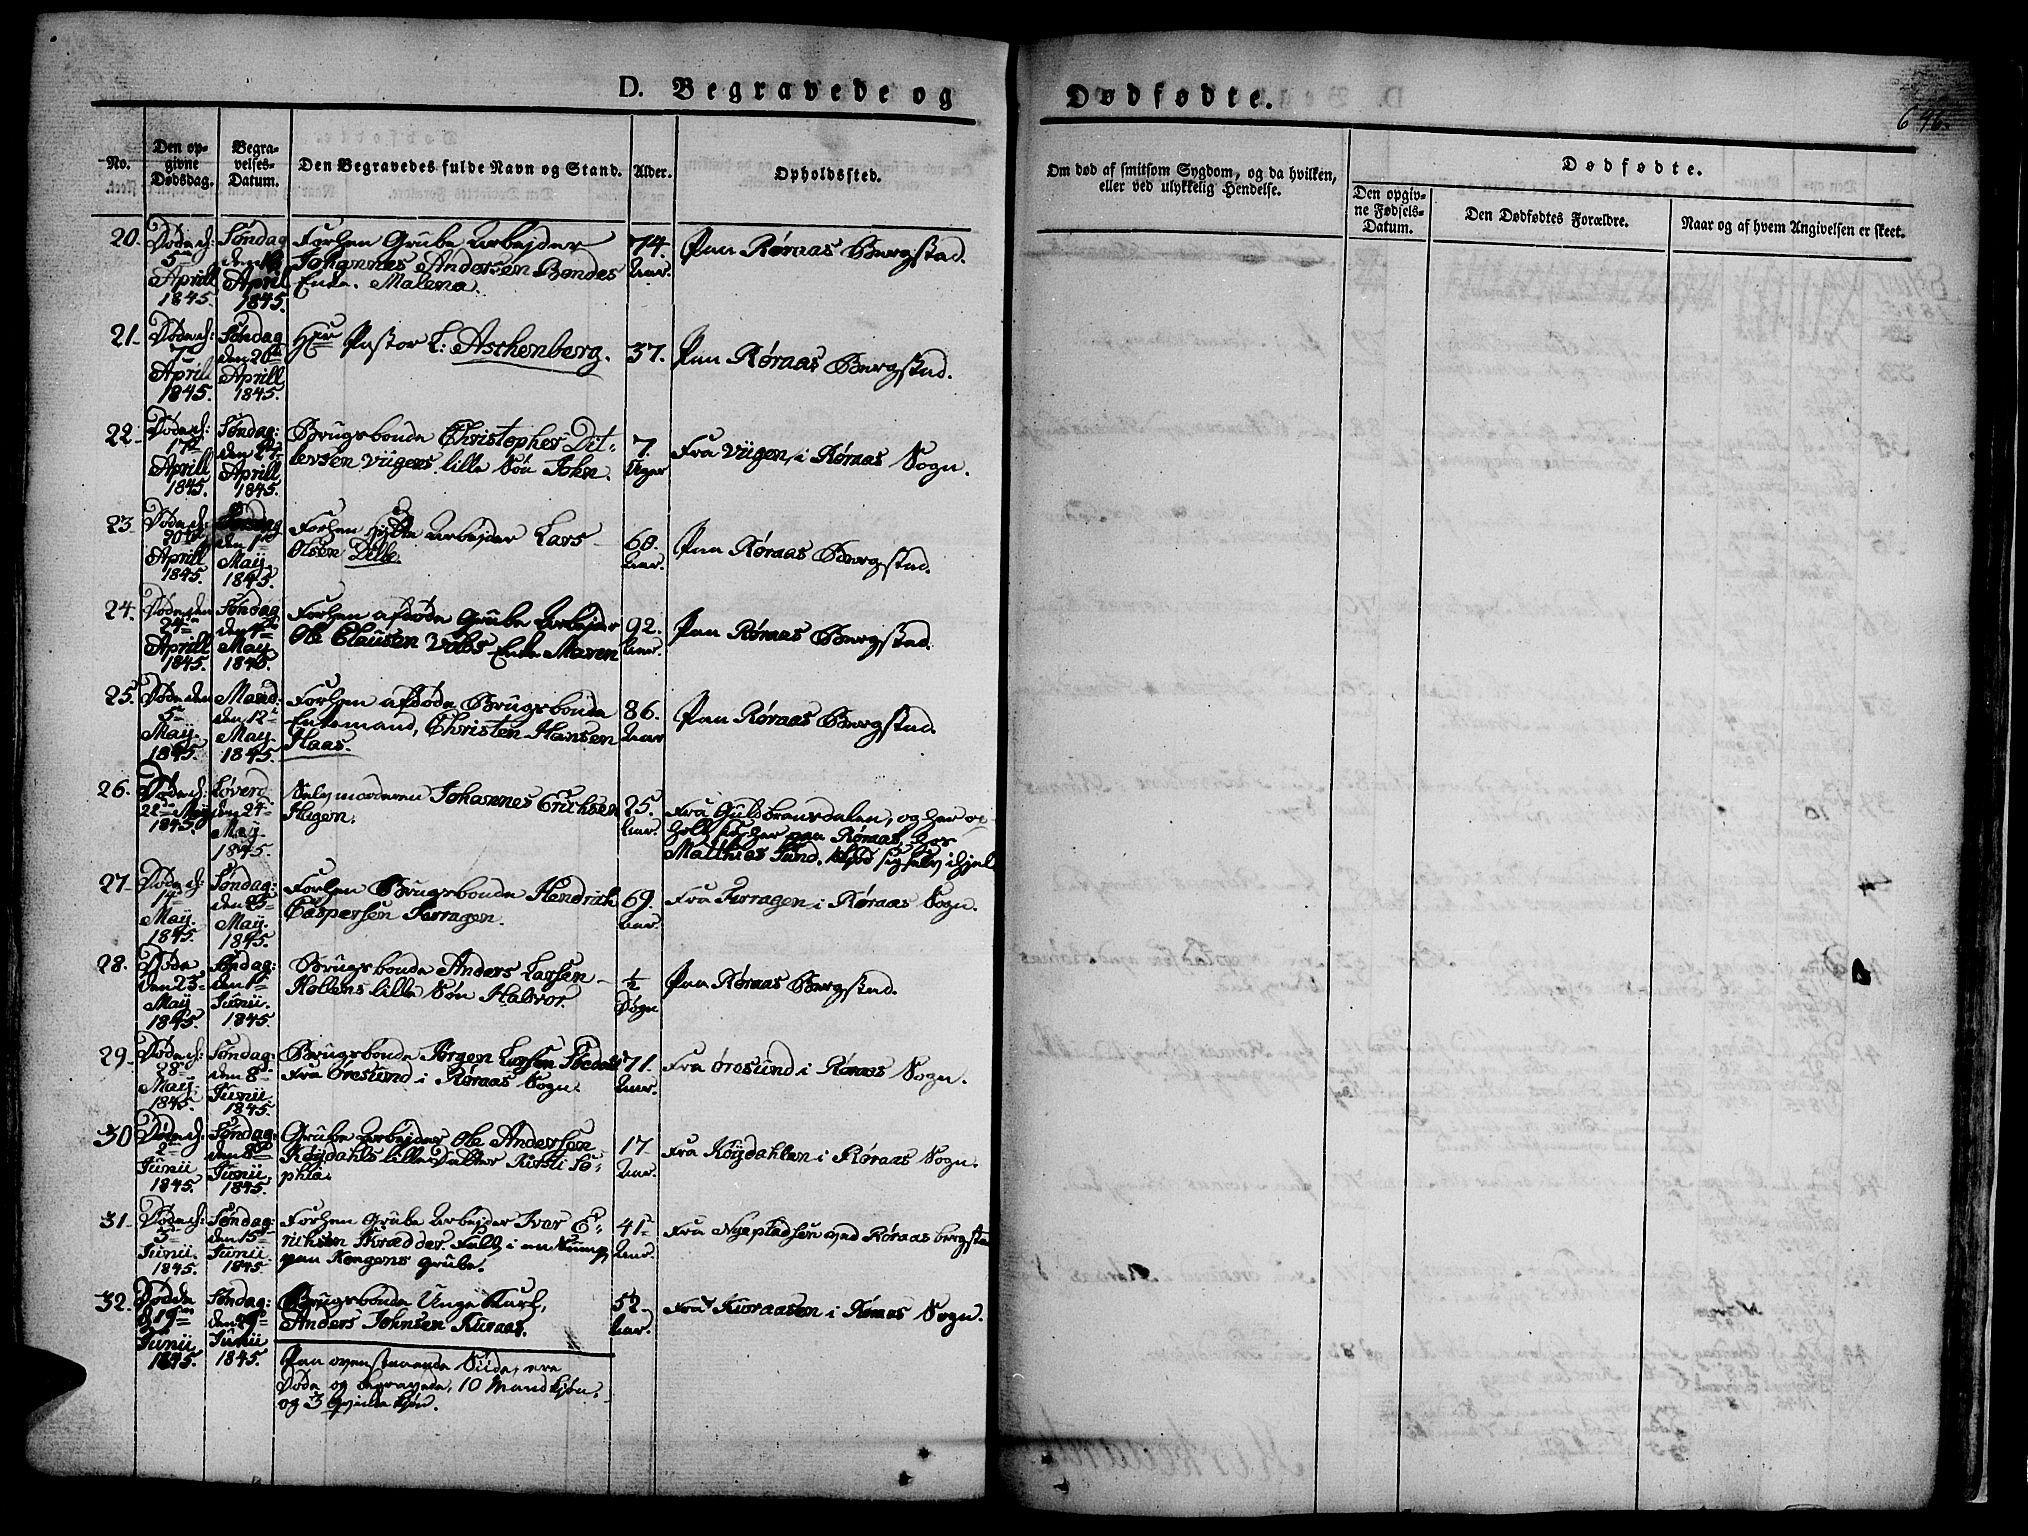 D. Begravede og Dødfødte.
646.
No.
Den op-
givne
Dødsdag.
Begra-
velses-
Datum.
Den Begravedes fulde Navn og Stand.
Alder.
Opholdssted.
Om død af smitsom Sygdom, og da hvilken,
eller ved ulykkelig Hendelse.
Dødfødte.
Den opgiv-
ne Fødsels-
Datum.
Den Dødfødtes Forældre.
Naar og af hvem Angivelsen er skeet.
20.
Døde d:
5te
Aprill
1845.
Søndag
den
Aprill
1845.
Forhen Grube Arbejder
Johannes Andersen Bendes
Enke. Malena.
74.
Aar.
Paa Røraas Bergstad.
21.
Døde d:
7de
Aprill
1845.
Søndag
den 20de
Aprill
1845.
Hr Pastor L: Aschenberg.
37.
Paa Røraas Bergstad.
22.
Døde d:
17de
Aprill
1845.
Søndag:
den 27de
Aprill
1845.
Brugsbonde Christopher Dit-
levsen Viigens lille Søn John.
7.
Uger
Fra Viigen, i Røraas Sogn.
23.
Døde d:
20de
Aprill
1845.
den 1te
May.
1845.
Forhen Hytte Arbejder Lars
Olsen Dille.
60.
Aar.
Paa Røraas Bergstad.
24.
Døde den
24de
Aprill
1845.
Søndag
den 4de
May
1845.
Forhen afdøde Grube Arbejder
Ole Clausen Volds Enke Maren
92.
Aar.
Paa Røraas Bergstad.
25.
Døde den
5te
May.
1845.
Mand:
den 12te
May.
1845.
Forhen afdøde Brugsbonde
Enkemand, Christen Hansen
Haas.
86.
Aar
Paa Røraas Bergstad.
26.
Døde d:
22de May
1845.
Løverd:
den 24de
May.
1845.
Selvmorderen Johannes Erichsen
Hagen.
25.
Aar.
Fra Guldbransdalen, og her op-
holt sig her paa Røraas, hos
Matthias Sund, skjød sig selv ihjel
27.
Døde d:
17de
May.
1845.
Søndag:
den 25de
May.
1845.
Forhen Brugsbonde Hendrich
Caspersen Feragen.
69.
Aar.
Fra Feragen i Røraas Sogn.
28.
Døde
den 23de
May
1845.
Søndag:
den 1te
Junii.
1845.
Brugsbonde Anders Larsen
Kollens lille Søn Halvor.
½
Døgn
Paa Røraas Bergstad.
29.
Døde d:
28de
May.
1845.
Søndag:
den 8de
Junii.
1845.
Brugsbonde Jørgen Larsen
Fra Øresund i Røraas Sogn.
71.
Aar.
Fra Øresund i Røraas Sogn.
30
Døde d:
2den
Junii
1845.
Søndag:
den 8de
Junii.
1845.
Grube Arbejder Ole Andersen
Køydahls lille Datter Kirsti So-
phia.
17
Aar.
Fra Køydahlen i Røraas Sogn.
31.
Døde d:
5te
Junii.
1845.
Søndag:
den 15de
Junii
1845.
Forhen Grube Arbejder Iver E-
richsen Skrædder. Falt i en
paa Kongens Grube.
41.
Aar.
Fra Nyepladsen ved Røraas bergstad
32.
Døde
d 19de
Junii
1845.
Søndag:
den 29de
Junii
1845.
Brugsbonde Unge Karl,
Anders Johnsen Kuraas.
52
Aar.
Fra Kuraasen i Røraas Sogn.
Paa ovenstaaende Siide, ere
Døde og begravede, 10 Mandkjøn.
og 3 Qvindekjøn.